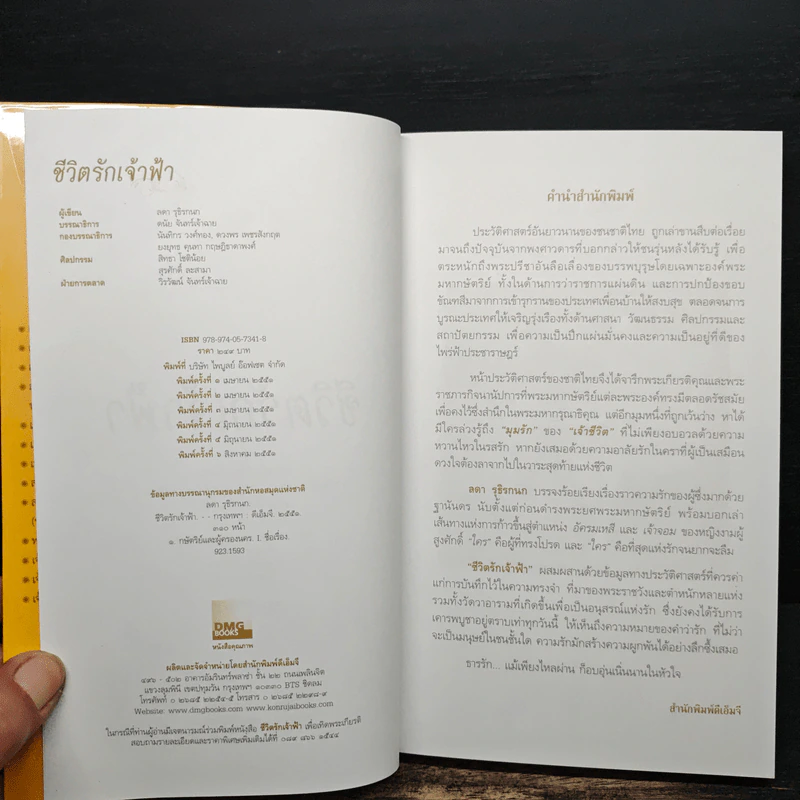 ชีวิตรักเจ้าฟ้า
ผู้เขียน ลดา รุธิรกนก
บรรณาธิการ ดนัย จันทร์เจ้าฉาย
กองบรรณาธิการ นันทิกร วงศ์ทอง, ดวงพร เพชรสังกฤต
ยงยุทธ คุนทา กฤษฎิธาดาพงศ์
ศิลปกรรม สิทธา โชติน้อย
สุรศักดิ์ ละสามา
ฝ่ายการตลาด วิรวัฒน์ จันทร์เจ้าฉาย
ISBN 978-974-05-7341-8
ราคา ๒๔๙ บาท
พิมพ์ที่ บริษัท ไพบูลย์ อ๊อฟเซต จำกัด
พิมพ์ครั้งที่ ๑ เมษายน ๒๕๕๑
พิมพ์ครั้งที่ ๒ เมษายน ๒๕๕๑
พิมพ์ครั้งที่ ๓ เมษายน ๒๕๕๑
พิมพ์ครั้งที่ ๔ มิถุนายน ๒๕๕๑
พิมพ์ครั้งที่ ๕ มิถุนายน ๒๕๕๑
พิมพ์ครั้งที่ ๖ สิงหาคม ๒๕๕๑
ข้อมูลทางบรรณานุกรมของสำนักหอสมุดแห่งชาติ
ลดา รุธิรกนก.
ชีวิตรักเจ้าฟ้า. - - กรุงเทพฯ : ดีเอ็มจี. ๒๕๕๑.
๓๑๐ หน้า
๑. กษัตริย์และผู้ครองนคร. I. ชื่อเรื่อง.
923.1593
DMG
BOOKS
หนังสือคุณภาพ
ผลิตและจัดจำหน่ายโดยสำนักพิมพ์ดีเอ็มจี
๔๙๖ - ๕๐๒ อาคารอัมรินทร์พลาซ่า ชั้น ๒๒ ถนนเพลินจิต
แขวงลุมพินี เขตปทุมวัน กรุงเทพฯ ๑๐๓๓๐ BTS ชิดลม
โทรศัพท์ ๐ ๒๖๘๕ ๒๒๕๔-๕ โทรสาร ๐ ๒๖๘๕ ๒๒๙๘-๙
Website: www.dmgbooks.com / www.konrujaibooks.com
ในกรณีที่ท่านผู้อ่านมีเจตนารมณ์ร่วมพิมพ์หนังสือ ชีวิตรักเจ้าฟ้า เพื่อเทิดพระเกียรติ
สอบถามรายละเอียดและราคาพิเศษเพิ่มเติมได้ที่ ๐๘๙ ๘๖๖ ๑๕๔๔
คำนำสำนักพิมพ์
ประวัติศาสตร์อันยาวนานของชนชาติไทย ถูกเล่าขานสืบต่อเรื่อย
มาจนถึงปัจจุบันจากพงศาวดารที่บอกกล่าวให้ชนรุ่นหลังได้รับรู้ เพื่อ
ตระหนักถึงพระปรีชาอันลือเลื่องของบรรพบุรุษโดยเฉพาะองค์พระ
มหากษัตริย์ ทั้งในด้านการว่าราชการแผ่นดิน และการปกป้องขอบ
ขัณฑสีมาจากการเข้ารุกรานของประเทศเพื่อนบ้านให้สงบสุข ตลอดจนการ
บูรณะประเทศให้เจริญรุ่งเรืองทั้งด้านศาสนา วัฒนธรรม ศิลปกรรมและ
สถาปัตยกรรม เพื่อความเป็นปึกแผ่นมั่นคงและความเป็นอยู่ที่ดีของ
ไพร่ฟ้าประชาราษฎร์
หน้าประวัติศาสตร์ของชาติไทยจึงได้จารึกพระเกียรติคุณและพระ
ราชภารกิจนานัปการที่พระมหากษัตริย์แต่ละพระองค์ทรงมีตลอดรัชสมัย
เพื่อคงไว้ซึ่งสำนึกในพระมหากรุณาธิคุณ แต่อีกมุมหนึ่งที่ถูกเว้นว่าง หาได้
มีใครล่วงรู้ถึง "มุมรัก" ของ "เจ้าชีวิต" ที่ไม่เพียงอบอวลด้วยความ
หวานไหวในรสรัก หากยังเสมอด้วยความอาลัยรักในคราที่ผู้เป็นเสมือน
ดวงใจต้องลาจากไปในวาระสุดท้ายแห่งชีวิต
ลดา รุธิรกนก บรรจงร้อยเรียงเรื่องราวความรักของผู้ซึ่งมากด้วย
ฐานันดร นับตั้งแต่ก่อนดำรงพระยศพระมหากษัตริย์ พร้อมบอกเล่า
เส้นทางแห่งการก้าวขึ้นสู่ตำแหน่ง อัครมเหสี และ เจ้าจอม ของหญิงงามผู้
สูงศักดิ์ "ใคร" คือผู้ที่ทรงโปรด และ "ใคร" คือที่สุดแห่งรักจนยากจะลืม
"ชีวิตรักเจ้าฟ้า" ผสมผสานด้วยข้อมูลทางประวัติศาสตร์ที่ควรค่า
แก่การบันทึกไว้ในความทรงจำ ที่มาของพระราชวังและตำหนักหลายแห่ง
รวมทั้งวัดวาอารามที่เกิดขึ้นเพื่อเป็นอนุสรณ์แห่งรัก ซึ่งยังคงได้รับการ
เคารพบูชาอยู่ตราบเท่าทุกวันนี้ ให้เห็นถึงความหมายของคำว่ารัก ที่ไม่ว่า
จะเป็นมนุษย์ในชนชั้นใด ความรักมักสร้างความผูกพันได้อย่างลึกซึ้งเสมอ
ธารรัก... แม้เพียงไหลผ่าน ก็อบอุ่นเนิ่นนานในหัวใจ
สำนักพิมพ์ดีเอ็มจี